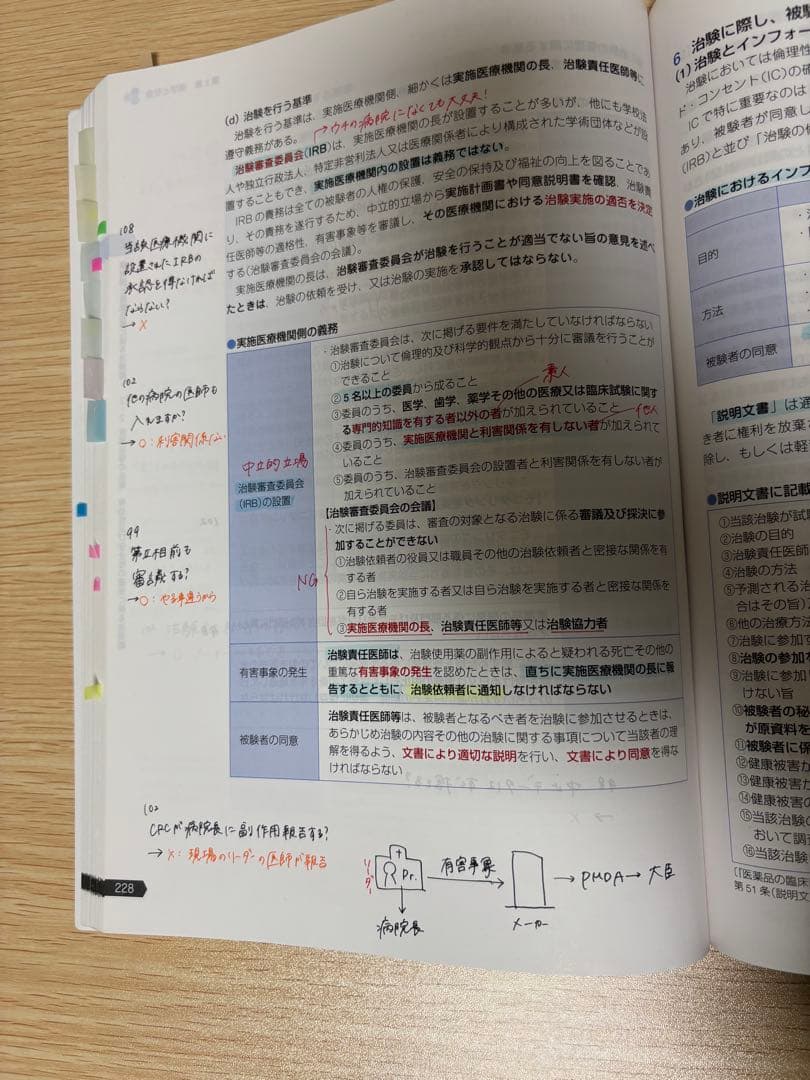 (d) 治験を行う基準
治験を行う基準は、実施医療機関側、細かくは実施医療機関の長、治験責任医師等に
遵守義務がある。
→ウチの病院になくても大丈夫!
治験審査委員会(IRB)は、実施医療機関の長が設置することが多いが、他にも学校法
人や独立行政法人、特定非営利法人又は医療関係者により構成された学術団体などが設
置することもでき、実施医療機関内の設置は義務ではない。
IRBの責務は全ての被験者の人権の保護、安全の保持及び福祉の向上を図ることであ
り、その責務を遂行するため、中立的立場から実施計画書や同意説明書を確認、治験責
任医師等の適格性、有害事象等を審議し、その医療機関における治験実施の適否を決定
する(治験審査委員会の会議)。
実施医療機関の長は、治験審査委員会が治験を行うことが適当でない旨の意見を述べ
たときは、治験の依頼を受け、又は治験の実施を承認してはならない。
108
当該医療機関に
設置されたIRBの
承認を得なければ
ならない?
→ ×
102
他の病院の医師も
入れますか?
→○:利害関係ない
99
第Ⅰ相前も
審議する?
→○:やる事違うから
●実施医療機関側の義務
中立的立場
治験審査委員会
(IRB)の設置
・治験審査委員会は、次に掲げる要件を満たしていなければならない
①治験について倫理的及び科学的観点から十分に審議を行うことが
できること
②5名以上の委員から成ること
素人
③委員のうち、医学、歯学、薬学その他の医療又は臨床試験に関す
る専門的知識を有する者以外の者が加えられていること
他人
④委員のうち、実施医療機関と利害関係を有しない者が加えられて
いること
⑤委員のうち、治験審査委員会の設置者と利害関係を有しない者が
加えられていること
【治験審査委員会の会議】
・次に掲げる委員は、審査の対象となる治験に係る審議及び採決に参
加することができない
NG
①治験依頼者の役員又は職員その他の治験依頼者と密接な関係を有
する者
②自ら治験を実施する者又は自ら治験を実施する者と密接な関係を
有する者
③実施医療機関の長、治験責任医師等又は治験協力者
有害事象の発生
治験責任医師は、治験使用薬の副作用によると疑われる死亡その他の
重篤な有害事象の発生を認めたときは、直ちに実施医療機関の長に報
告するとともに、治験依頼者に通知しなければならない
被験者の同意
治験責任医師等は、被験者となるべき者を治験に参加させるときは、
あらかじめ治験の内容その他の治験に関する事項について当該者の理
解を得るよう、文書により適切な説明を行い、文書により同意を得な
ければならない
102
CRCが病院長に副作用報告する?
→×:現場のリーダーの医師が報告
リーダー
Dr.
有害事象
→PMDA→大臣
病院長
メーカー
228
6 治験に際し、被験
(1) 治験とインフォー
治験においては倫理性
ド・コンセント(IC)の確
ICで特に重要なのは
あり、被験者が同意し
(IRB)と並び「治験の
●治験におけるインフ
目的
方法
被験者の同意
「説明文書」は通
き者に権利を放棄
除し、もしくは軽
●説明文書に記載
①当該治験が試
②治験の目的
③治験責任医師
④治験の方法
⑤予測される治
合はその旨)
⑥他の治療方法
⑦治験に参加す
⑧治験の参加を
⑨治験に参加し
けない旨
⑩被験者の秘
が原資料を
⑪被験者に係
⑫健康被害が
⑬健康被害が
⑭健康被害の
⑮当該治験の
おいて調査
⑯当該治験
(「医薬品の臨床
第51条(説明文